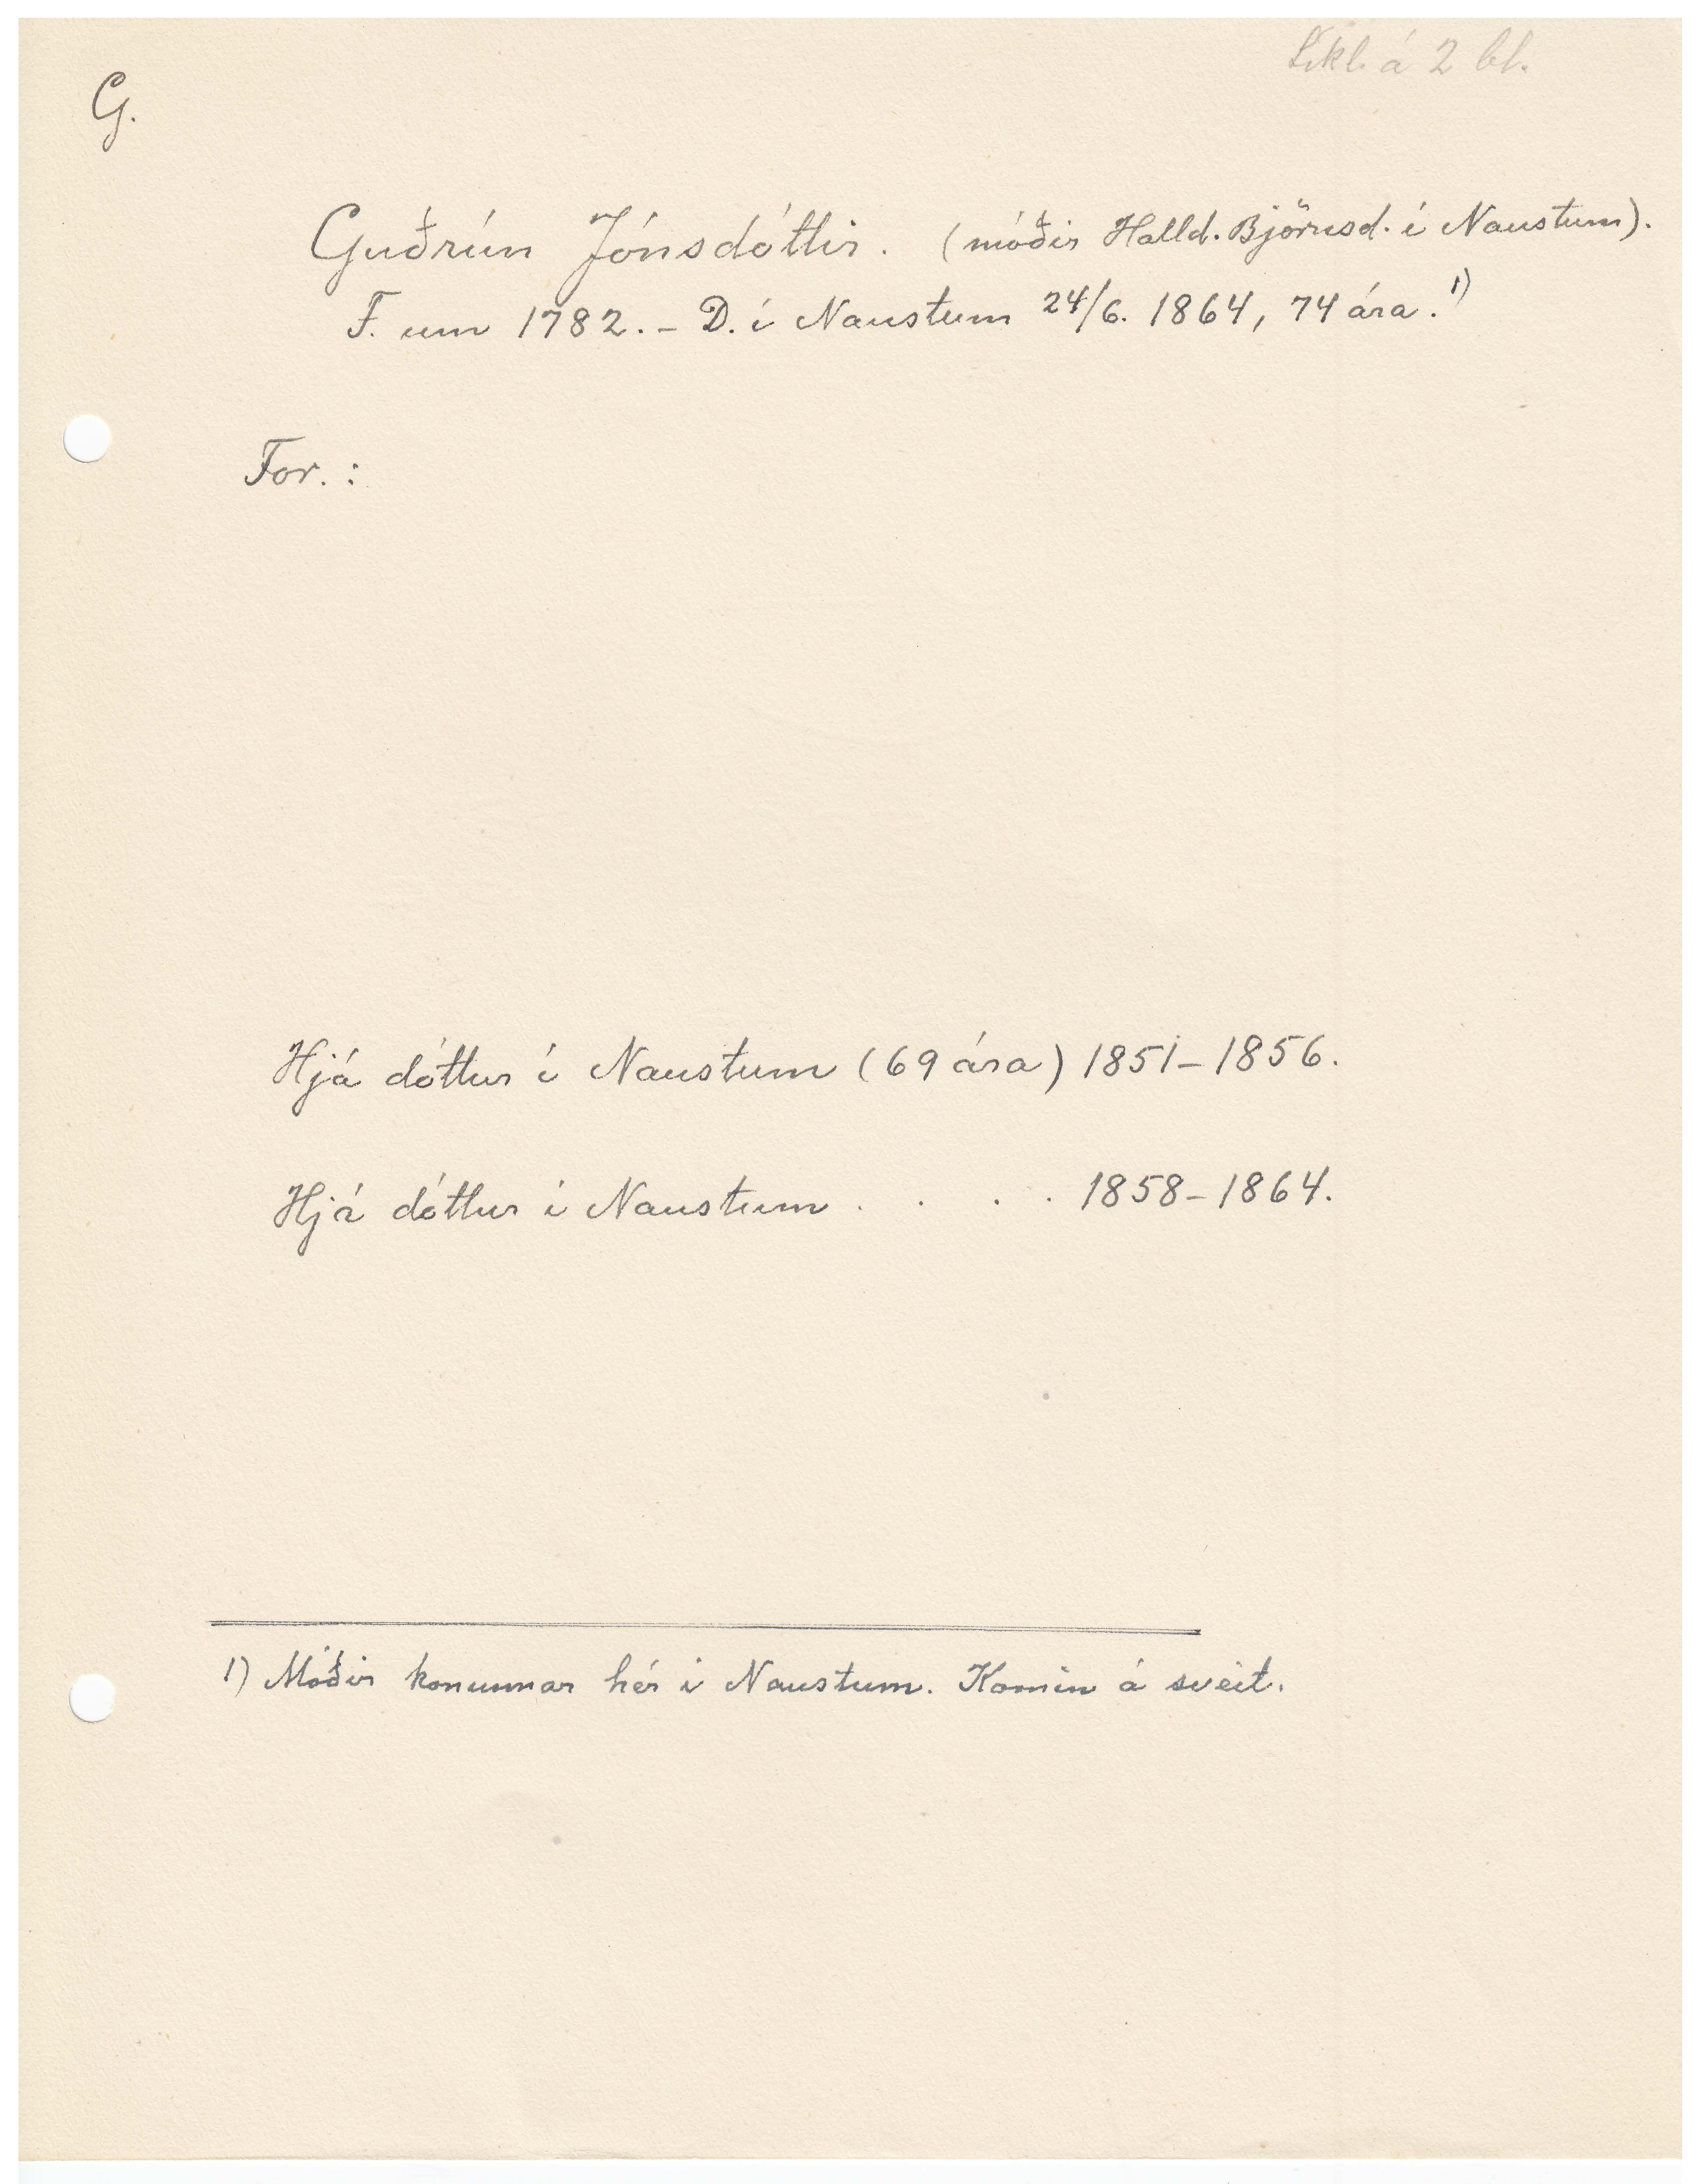 Líkl. á 2 bl.
G.
Guðrún Jónsdóttir. (móðir Halld. Björnsd. í Naustum).
F. um 1782. - D. í Naustum 24/6. 1864, 74 ára. 1)
For. :
Hjá dóttur í Naustum (69 ára) 1851 - 1856.
Hjá dóttur í Naustum . . . . 1858 - 1864.
1) Móðir konunnar hér í Naustum. Komin á sveit.